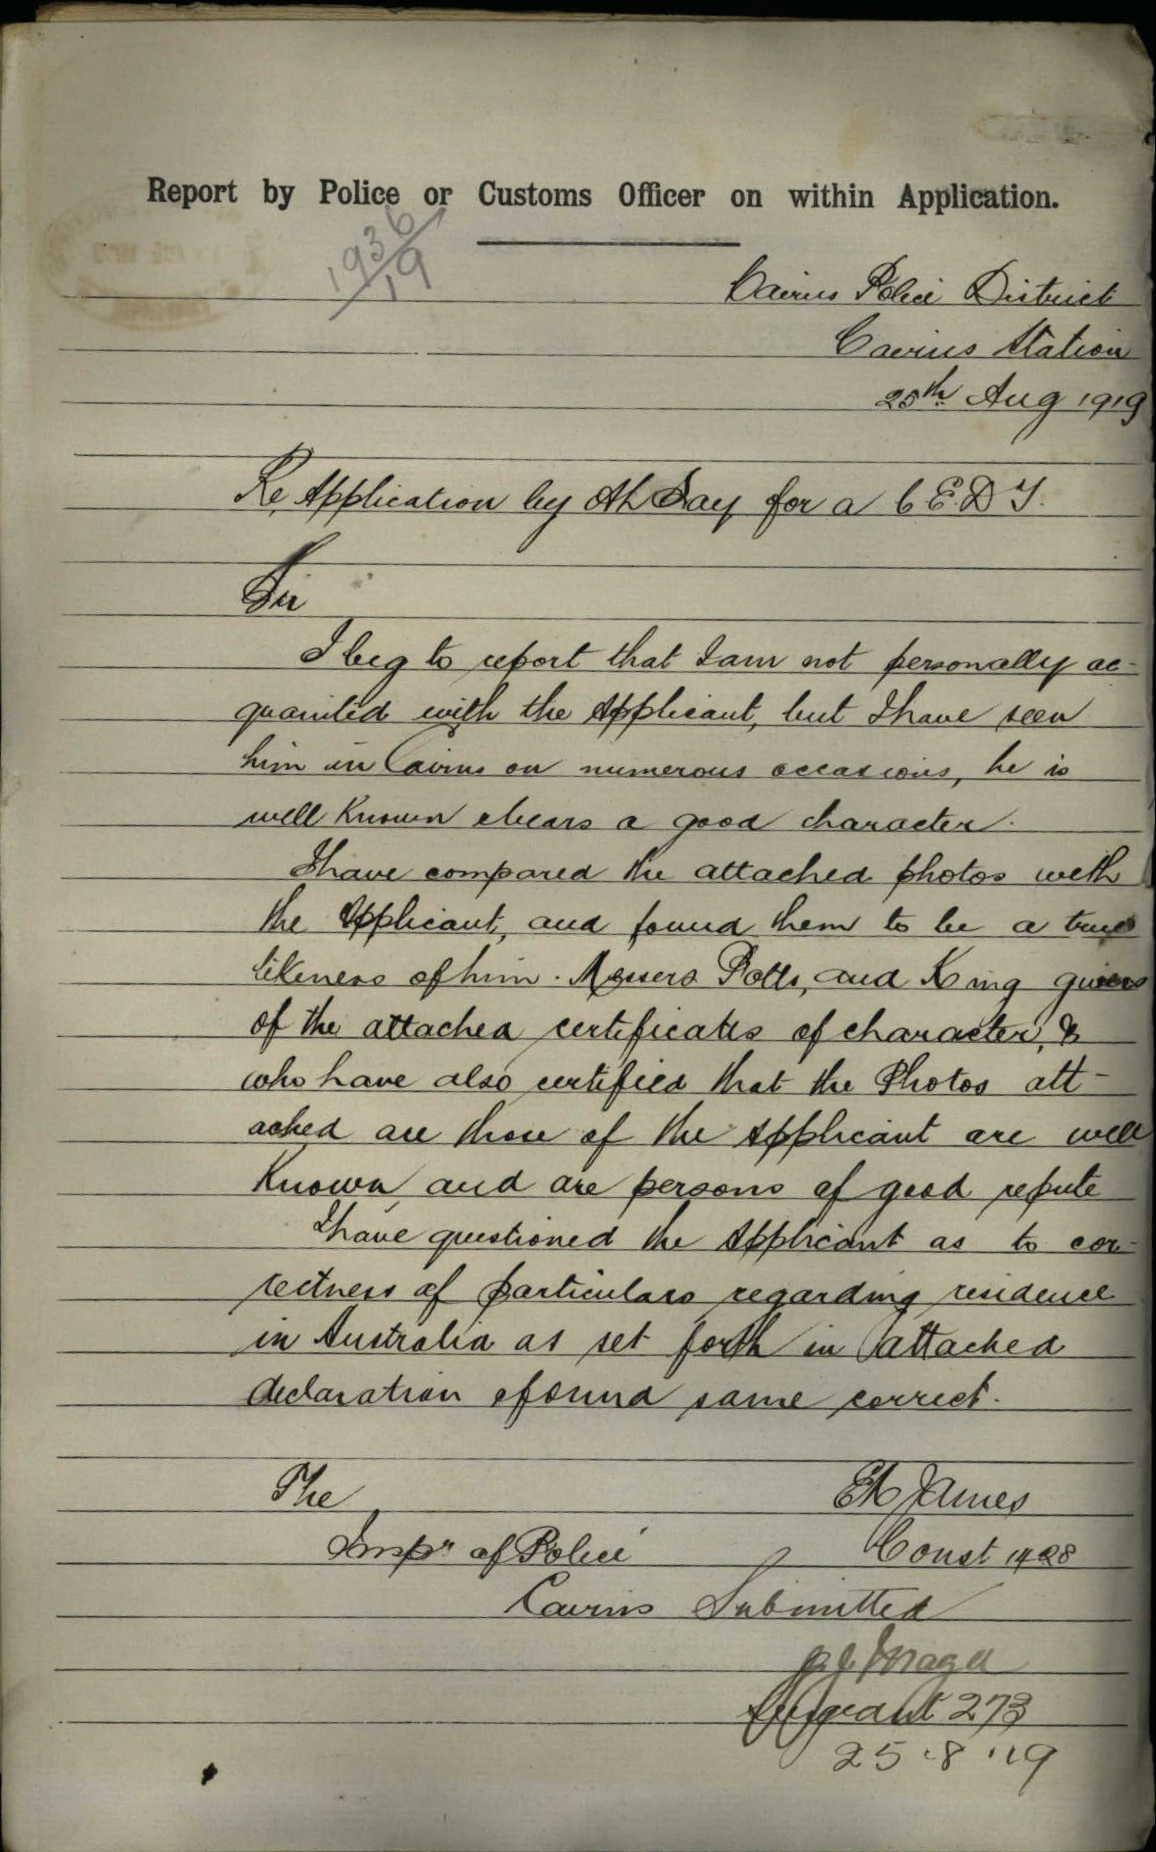 Report by Police or Customs Officer on within Application.
1936/19
Cairns Police District
Cairns Station
25th Aug 1919
Re Application by Ah Day for a C.E.D.T.
Sir
I beg to report that I am not personally ac-
quainted with the Applicant, but I have seen
him in Cairns on numerous occasions, he is
well Known & bears a good character.
I have compared the attached photos with
the Applicant, and found them to be a true
likeness of him. Messers Potts, and King givers
of the attached certificates of character, &
who have also certified that the Photos att-
ached are those of the Applicant are well
Known and are persons of good repute
I have questioned the Applicant as to cor-
rectness of particulars regarding residence
in Australia as set forth in attached
declaration & found same correct.
The James
Inspr of Police Const 1428
Cairns Submitted
Sergeant 273
25.8.'19